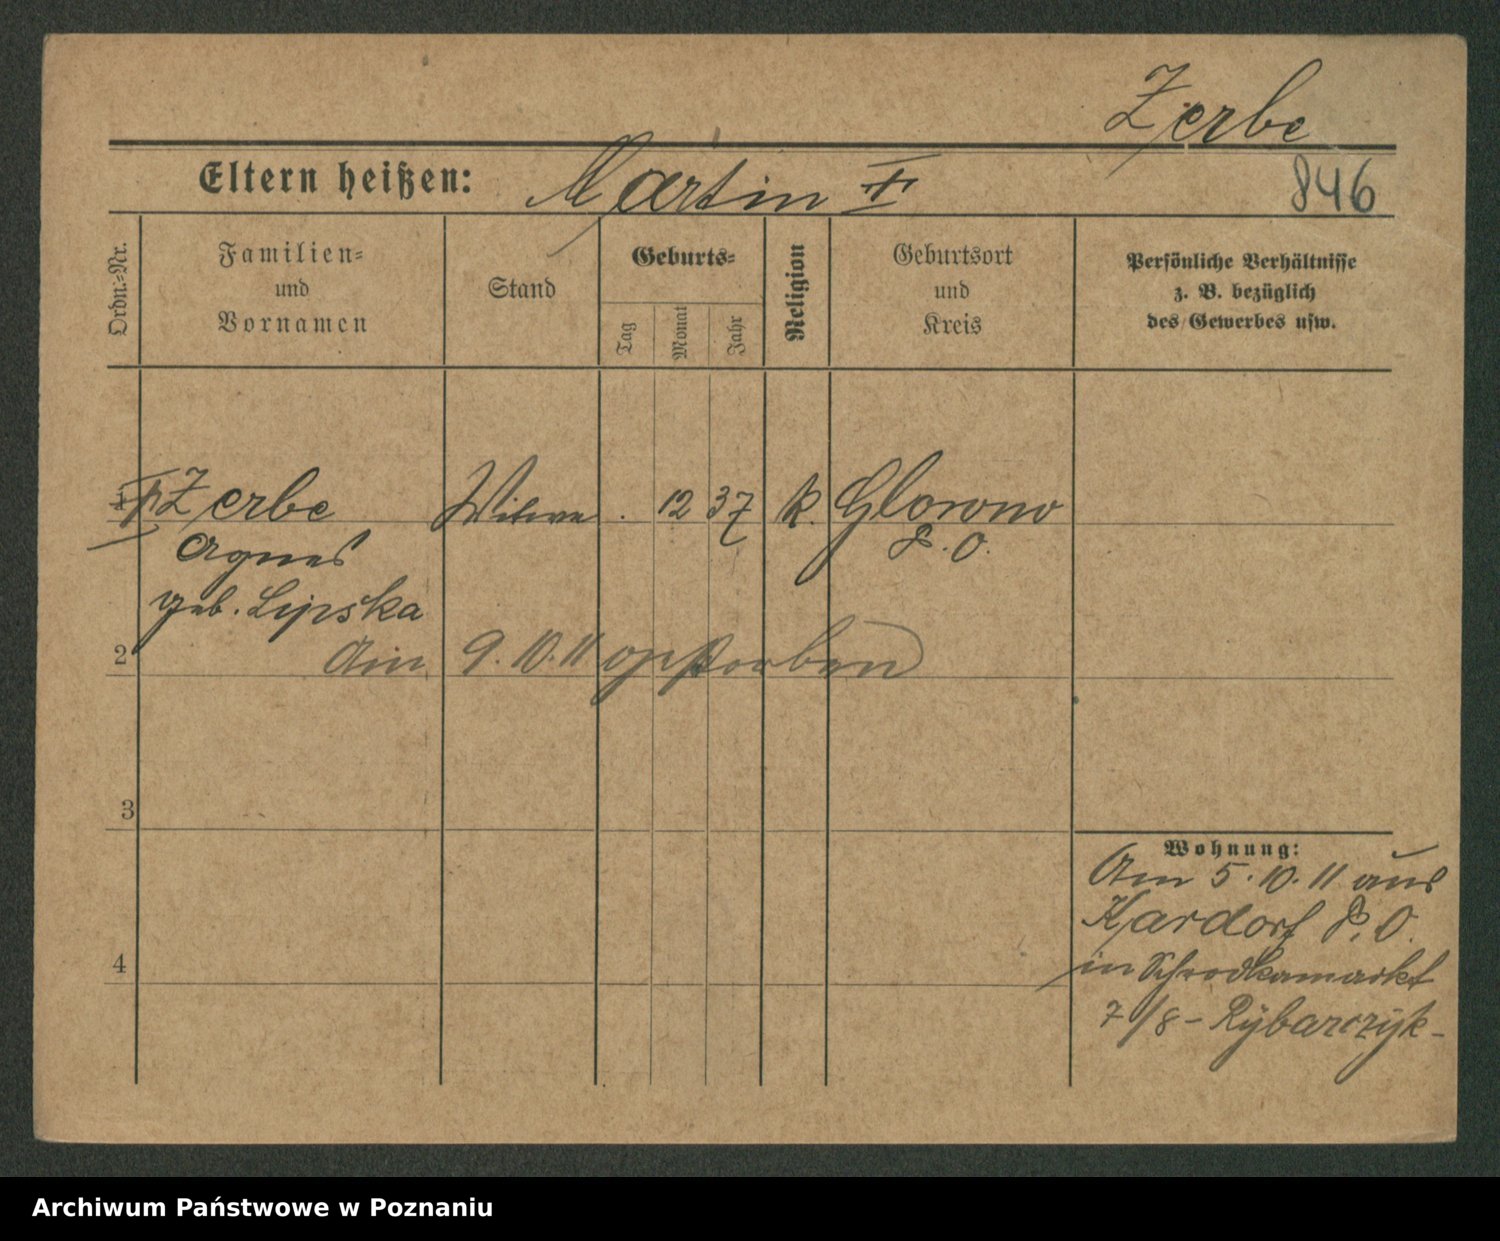 Zerbe
Eltern heißen: Martin †
846
Ordn.-Nr.
Familien-
und
Vornamen
Stand
Geburts-
Tag
Monat
Jahr
Religion
Geburtsort
und
Kreis
Persönliche Verhältnisse
z. B. bezüglich
des Gewerbes usw.
1 † Zerbe Witwe . 12 37 k. Glowno
Agnes P. O.
geb. Lipska
2 Am 9.10.11 gestorben
3
4
Wohnung:
Am 5.10.11 aus
P. O.
in Schrodkamarkt
7/8 - Rybarczyk -
Archiwum Państwowe w Poznaniu